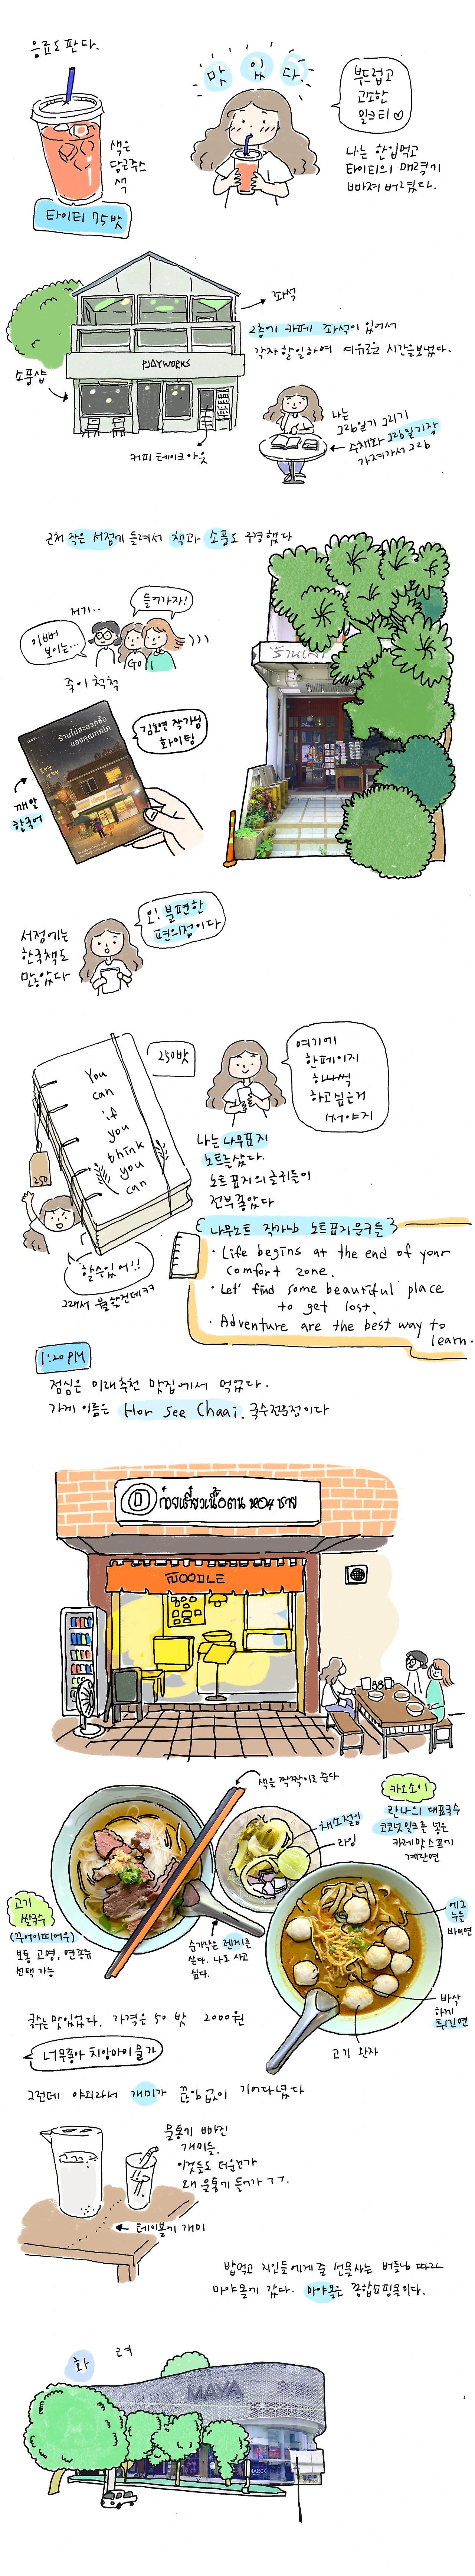 음료도 판다.
맛 있 다.
부드럽고
고소한
밀크티♡
색은
당근주스
색
타이티 75밧
나는 한입먹고
타이티의 매력에
빠져 버렸다.
좌석
2층에 카페 좌석이 있어서
각자 할일하며 여유로운 시간을 보냈다.
PLAYWORKS
소품샵
커피 테이크아웃
나는
그림일기 그리기
수채화 그림일기장
가져가서 그림
근처 작은 서점에 들려서 책과 소품도 구경했다
저기..
들어가자!
이뻐
보이는...
GO
죽이 척척
ร้านไม่สะดวกซื้อ
ของคุณทกโก
김호연 작가님
화이팅
깨알
한국어
서점에는
한국책도
많았다
오! 불편한
편의점이다
250밧
You
can
if
you
think
you
can
250
여기에
한페이지
하나씩
하고싶은거
써야지
나는 나무표지
노트를 샀다.
노트 표지의 글귀들이
전부 좋았다
할수있어!!
그래서 뭘할건데ㅋㅋ
나무노트 작가님 노트표지 문구들
· Life begins at the end of your
comfort zone.
· Let' find some beautiful place
to get lost.
· Adventure are the best way to
learn.
1:20PM
점심은 미래추천 맛집에서 먹었다.
가게 이름은 Hor See Chaai. 국수전문점이다
ก๋วยเตี๋ยวเนื้อตุ๋น หอม ชาย
NOODLE
색은 짝짝이로 준다
카오소이
란나의 대표국수
코코넛밀크를 넣은
카레맛 스프에
계란면
채소절임
라임
고기
쌀국수
(꾸어이띠어우)
보통 고명, 면종류
선택 가능
숟가락은 렌게를
쓴다. 나도 사고
싶다.
에그
누들
바미면
바삭
하게
튀긴면
고기 완자
국수는 맛있었다. 가격은 50밧 2000원
너무좋아 치앙마이 물가
그런데 야외라서 개미가 끊임없이 기어다녔다
물통에 빠진
개미들.
이것들도 더운건가
왜 물통에 들어가 ㅜㅜ.
테이블에 개미
밥먹고 지인들에게 줄 선물사는 버들님 따라
마야몰에 갔다. 마야몰은 종합쇼핑몰이다.
화 려
MAYA